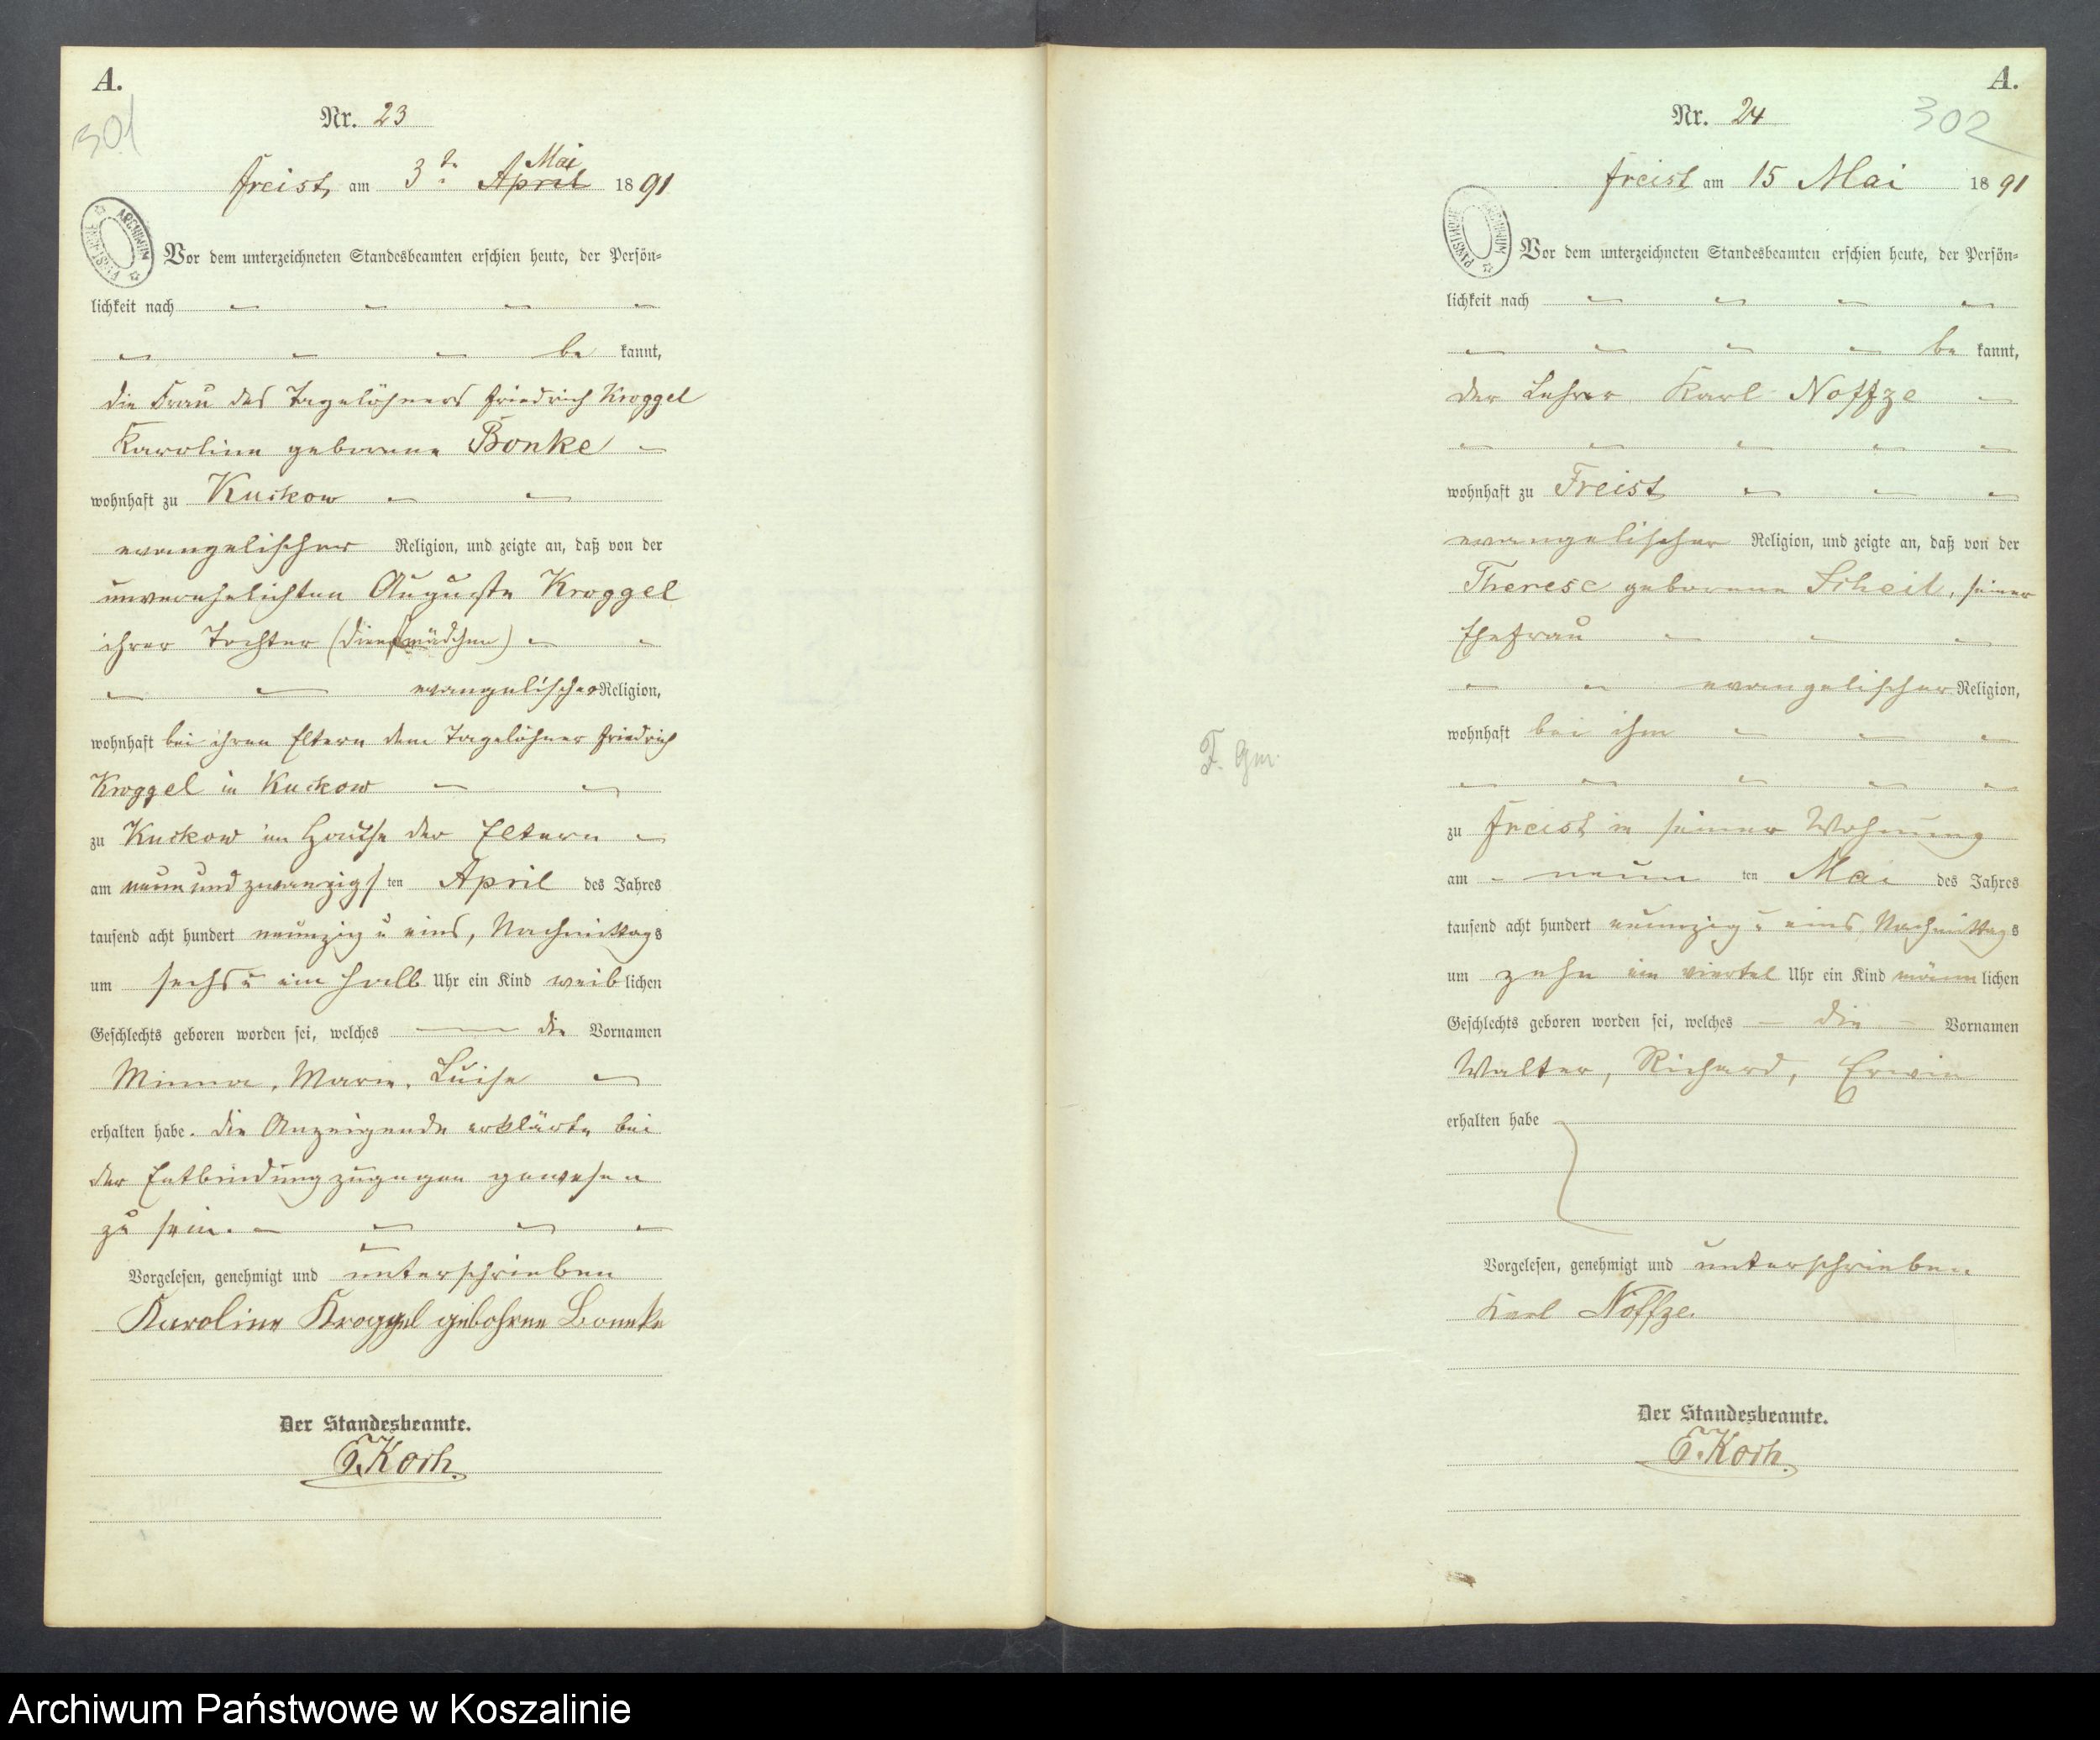 A.
301
Nr. 23
Freist, am 3t. April Mai 1891
ARCHIWUM PAŃSTWOWE
Vor dem unterzeichneten Standesbeamten erschien heute, der Persön-
lichkeit nach
be kannt,
die Frau des Tagelöhners Friedrich Kroggel
Karoline geborene Bonke
wohnhaft zu Kuckow
evangelischer Religion, und zeigte an, daß von der
unverehelichten Auguste Kroggel
ihrer Tochter (Dienstmädchen)
evangelischer Religion,
wohnhaft bei ihren Eltern dem Tagelöhner Friedrich
Kroggel in Kuckow
zu Kuckow im Hause der Eltern
am neun und zwanzigs ten April des Jahres
tausend acht hundert neunzig u eins, Nachmittags
um sechs u ein halb Uhr ein Kind weib lichen
Geschlechts geboren worden sei, welches die Vornamen
Minna, Marie, Luise
erhalten habe. Die Anzeigende erklärte bei
der Entbindung zugegen gewesen
zu sein.
Vorgelesen, genehmigt und unterschrieben
Karoline Kroggel gebohrne Bonnke
Der Standesbeamte.
E. Koch.
A.
302
Nr. 24
Freist am 15 Mai 1891
ARCHIWUM PAŃSTWOWE
Vor dem unterzeichneten Standesbeamten erschien heute, der Persön-
lichkeit nach
be kannt,
der Lehrer Karl Noffze
wohnhaft zu Freist
evangelischer Religion, und zeigte an, daß von der
Therese geborene Scheil, seiner
Ehefrau
evangelischer Religion,
wohnhaft bei ihm
zu Freist in seiner Wohnung
am neun ten Mai des Jahres
tausend acht hundert neunzig u eins Nachmittags
um zehn ein viertel Uhr ein Kind männ lichen
Geschlechts geboren worden sei, welches die Vornamen
Walter, Richard, Erwin
erhalten habe
Vorgelesen, genehmigt und unterschrieben
Karl Noffze.
Der Standesbeamte.
E. Koch.
Archiwum Państwowe w Koszalinie